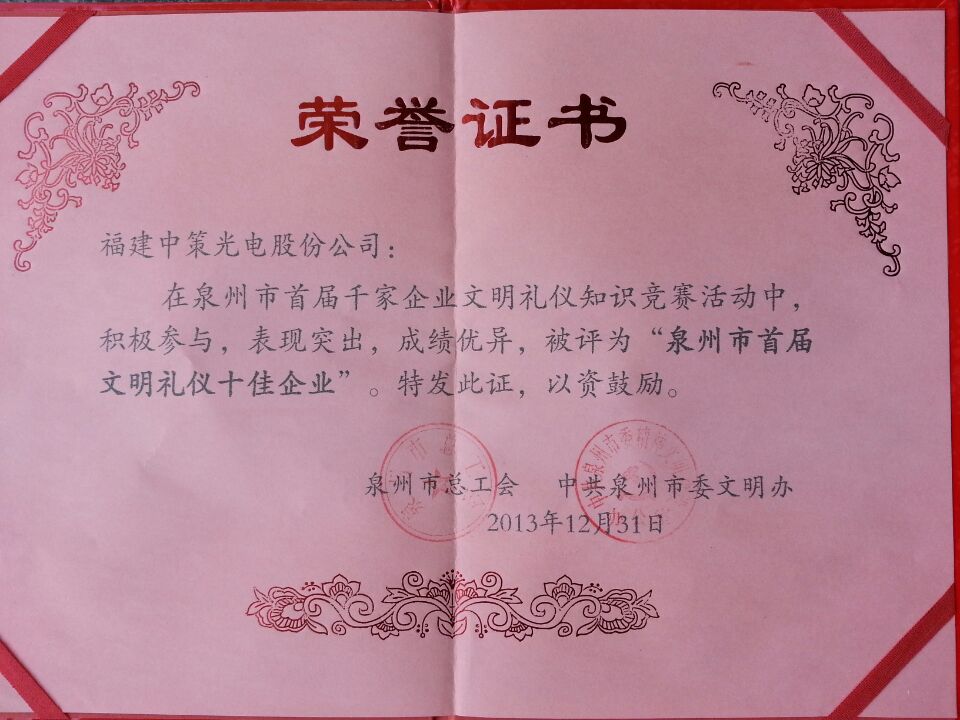 荣誉证书
福建中策光电股份公司：
在泉州市首届千家企业文明礼仪知识竞赛活动中，
积极参与，表现突出，成绩优异，被评为“泉州市首届
文明礼仪十佳企业”。特发此证，以资鼓励。
泉州市总工会 中共泉州市委文明办
2013年12月31日